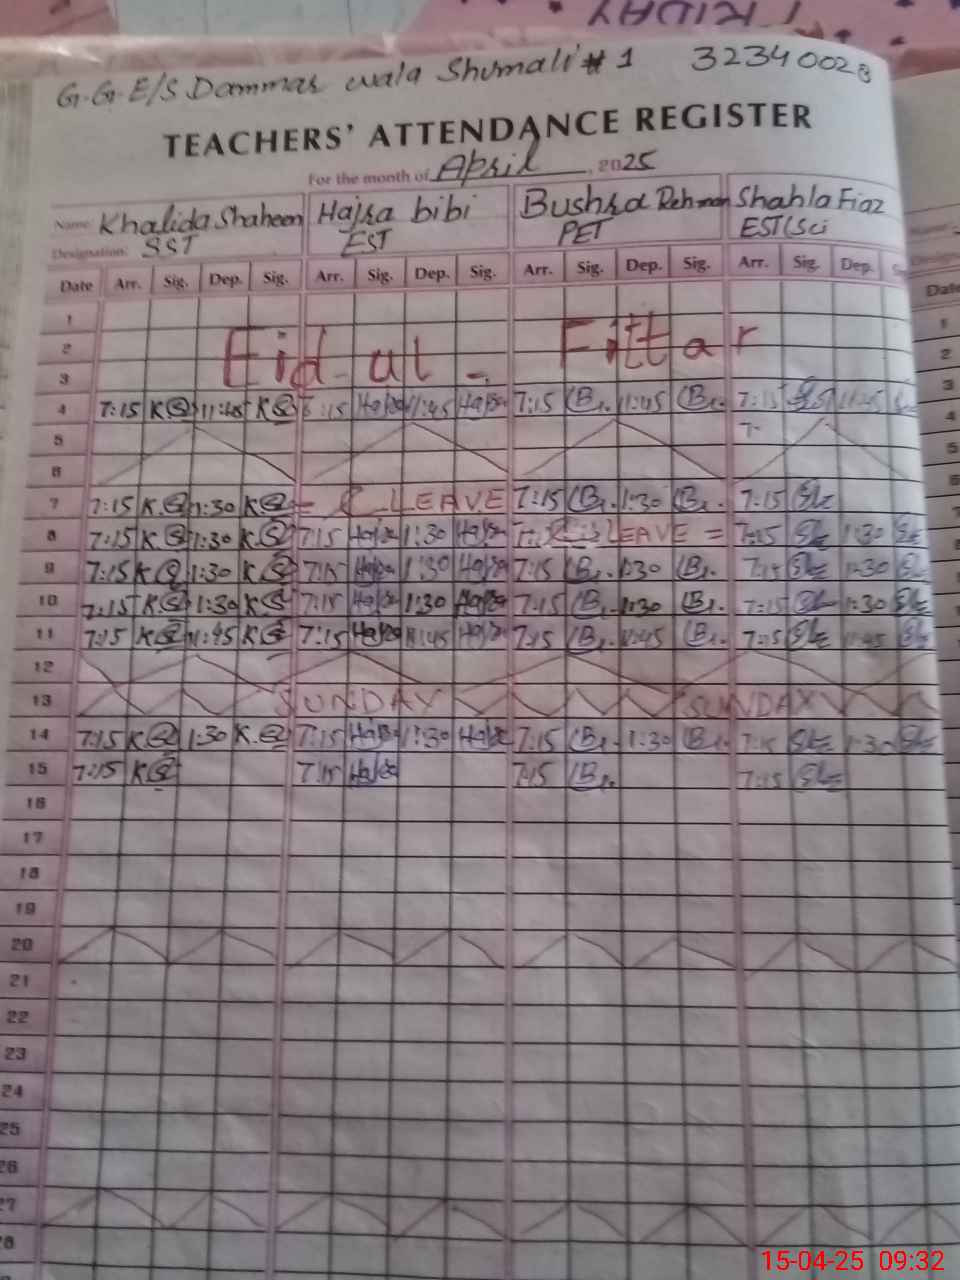 FRIDAY
G.G.E/S Dammar wala Shumali #1 32340028
TEACHERS' ATTENDANCE REGISTER
For the month of April, 2025
Name: Khalida Shaheen Hajra bibi Bushra Rehman Shahla Fiaz
Designation: SST EST PET EST(Sci
Date Arr. Sig. Dep. Sig. Arr. Sig. Dep. Sig. Arr. Sig. Dep. Sig. Arr. Sig. Dep.
1
2 Eid ul - Fittar
3
4 7:15 11:45 :15 Hajra 11:45 Hajra 7:15 11:45 7:15 11:45
5 7-
6
7 7:15 1:30 LEAVE 7:15 1:30 7:15
8 7:15 1:30 7:15 Hajra 1:30 Hajra LEAVE = 7:15 1:30
9 7:15 1:30 7:15 Hajra 1:30 Hajra 7:15 1:30 7:15 1:30
10 7:15 1:30 7:15 Hajra 1:30 Hajra 7:15 1:30 7:15 1:30
11 7:15 11:45 7:15 Hajra 11:45 Hajra 7:15 11:45 7:15 11:45
12
13 SUNDAY SUNDAY
14 7:15 1:30 7:15 Hajra 1:30 Hajra 7:15 1:30 7:15 1:30
15 7:15 7:15 Hajra 7:15 7:15
16
17
18
19
20
21
22
23
24
25
26
27
28
Date
1
2
3
4
5
6
7
8
9
10
11
15-04-25 09:32